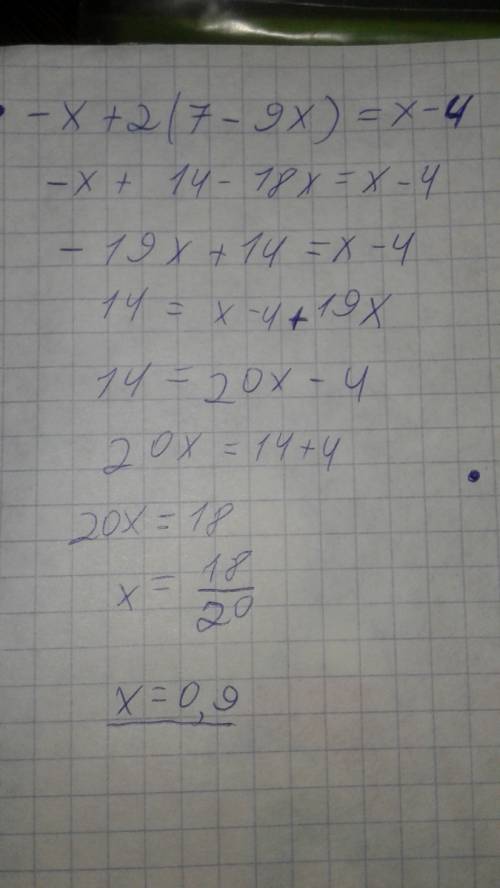 -x + 2(7 - 9x) = x - 4
-x + 14 - 18x = x - 4
-19x + 14 = x - 4
14 = x - 4 + 19x
14 = 20x - 4
20x = 14 + 4
20x = 18
x = 18/20
x = 0,9